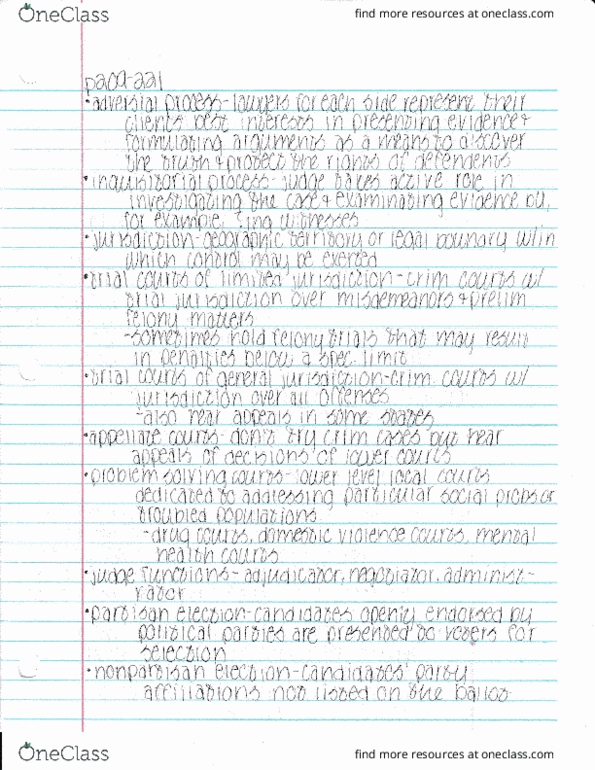 OneClass
find more resources at oneclass.com
•adversial process-lawyers for each side represent their
clients best interests in presenting evidence+
formulating arguments as a means to discover
the truth + protect the rights of defendents
•inquisitorial process-judge takes active role in
investigating the case + examinating evidence by,
for example, ?ing witnesses
•jurisdiction-geographic territory or legal bounary w/in
which control may be exerted
•trial courts of limited jurisdiction-crim courts w/
trial jurisdiction over misdemeanors + prelim
felony matters
-sometimes hold felony trials that may result
in penalties below a spec. limit
•trial courts of general jurisdiction-crim. courts w/
jurisdiction over all offenses
-also hear appeals in some states
•appellate courts-don't try crim cases but hear
appeals of decisions of lower courts
•problem solving courts-lower level local courts
dedicated to addressing particular social probs or
troubled populations
-drug courts, domestic violence courts, mental
health courts
•judge functions-adjudicator, negotiator, administ-
rator
•partisan election-candidates openly endorsed by
political parties are presented to voters for
selection
•nonpartisan election-candidates' party
affiliations not listed on the ballot
OneClass
find more resources at oneclass.com